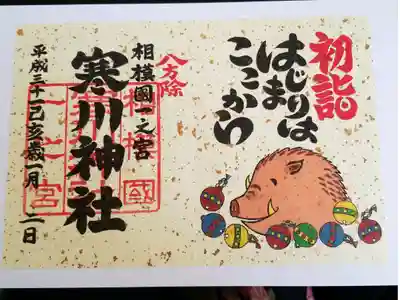 初詣
はじまりは
ここから
八方除
相模國一之宮
寒川神社
平成三十一己亥歳一月二日